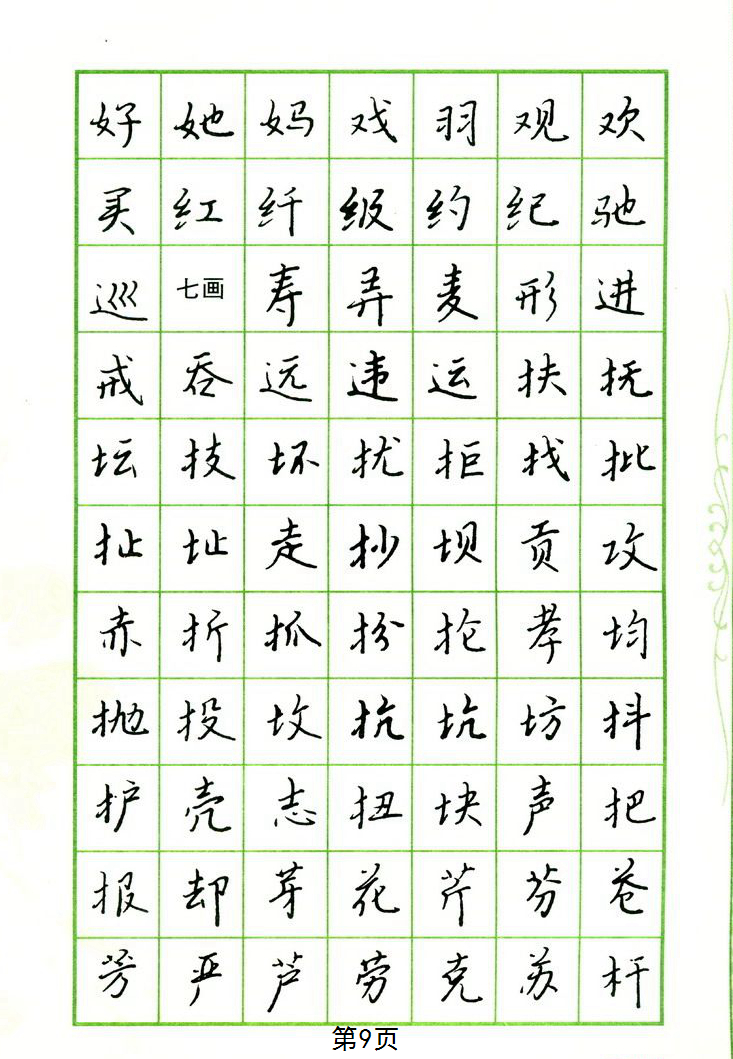 好她妈戏羽观欢
买红纤级约纪驰
巡七画寿弄麦形进
戒吞远违运扶抚
坛技坏扰拒找批
扯址走抄坝贡攻
赤折抓扮抢孝均
抛投坟抗坑坊抖
护壳志扭块声把
报却芽花芹芬苍
芳严芦劳克苏杆
第9页